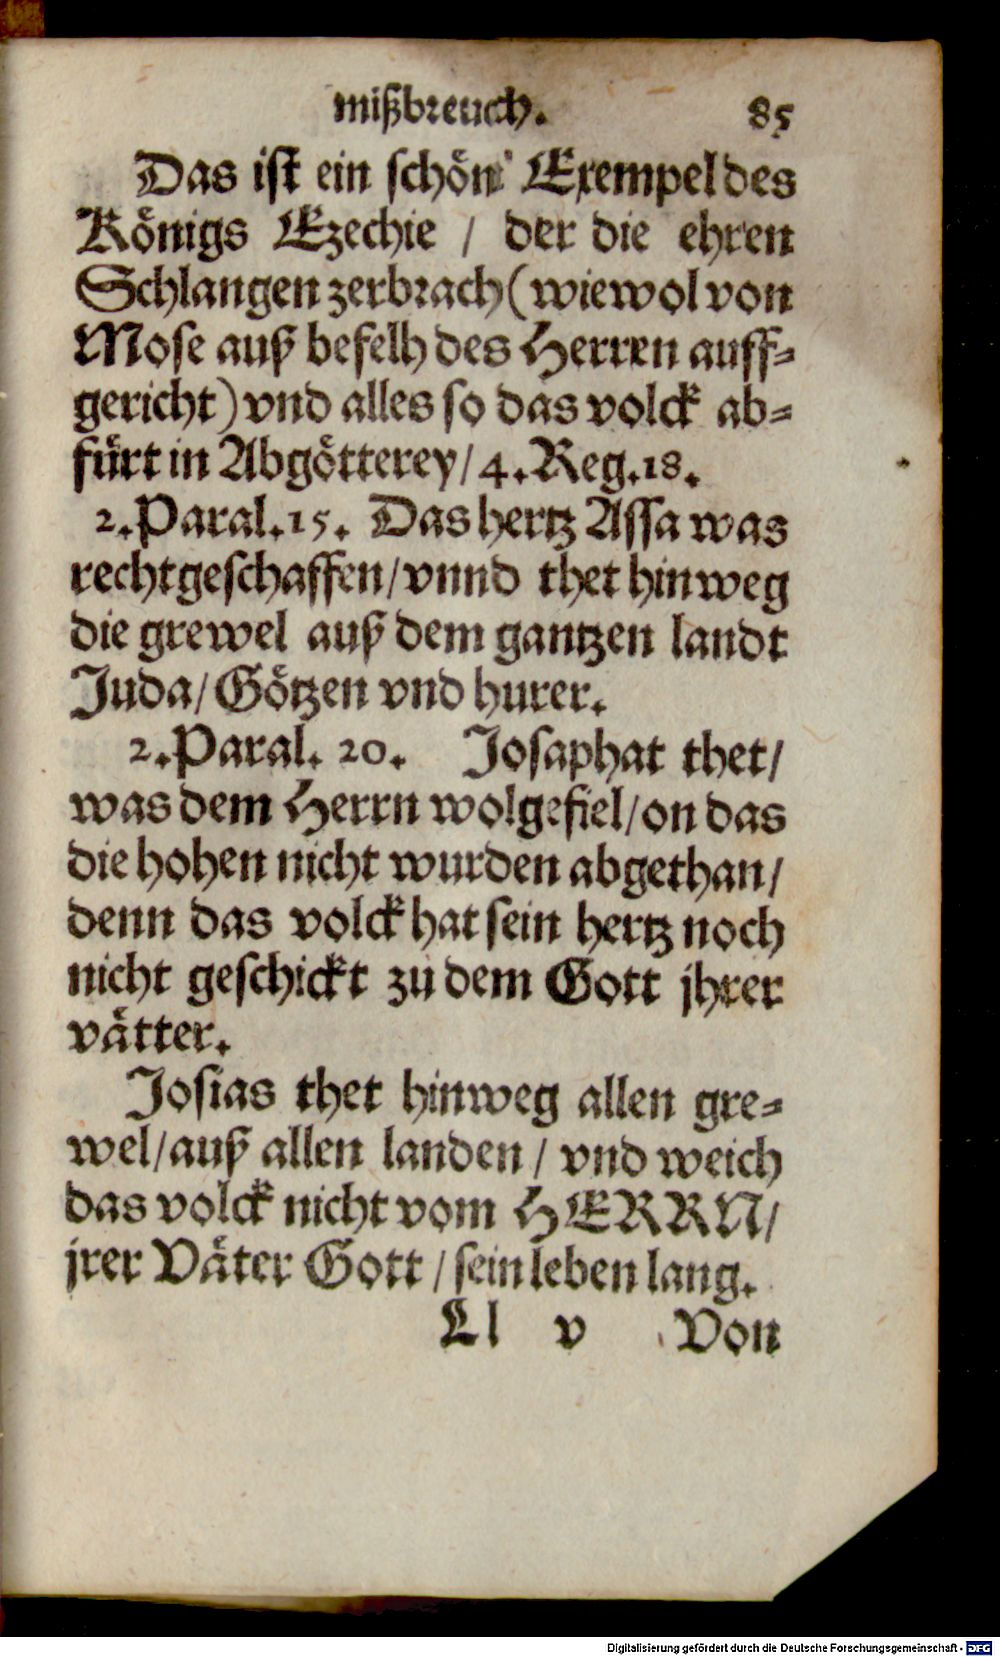 mißbreuch. 85
Das ist ein schön Exempel des
Königs Ezechie / der die ehren
Schlangen zerbrach (wiewol von
Mose auß befelh des Herren auff=
gericht) vnd alles so das volck ab=
fürt in Abgötterey / 4. Reg. 18.
2. Paral. 15. Das hertz Assa was
rechtgeschaffen / vnnd thet hinweg
die grewel auß dem gantzen landt
Juda / Götzen vnd hurer.
2. Paral. 20. Josaphat thet /
was dem Herrn wolgefiel / on das
die hohen nicht wurden abgethan /
denn das volck hat sein hertz noch
nicht geschickt zů dem Gott jhrer
vätter.
Josias thet hinweg allen gre=
wel / auß allen landen / vnd weich
das volck nicht vom HERRN /
jrer Väter Gott / sein leben lang.
Ll v Von
Digitalisierung gefördert durch die Deutsche Forschungsgemeinschaft - DFG